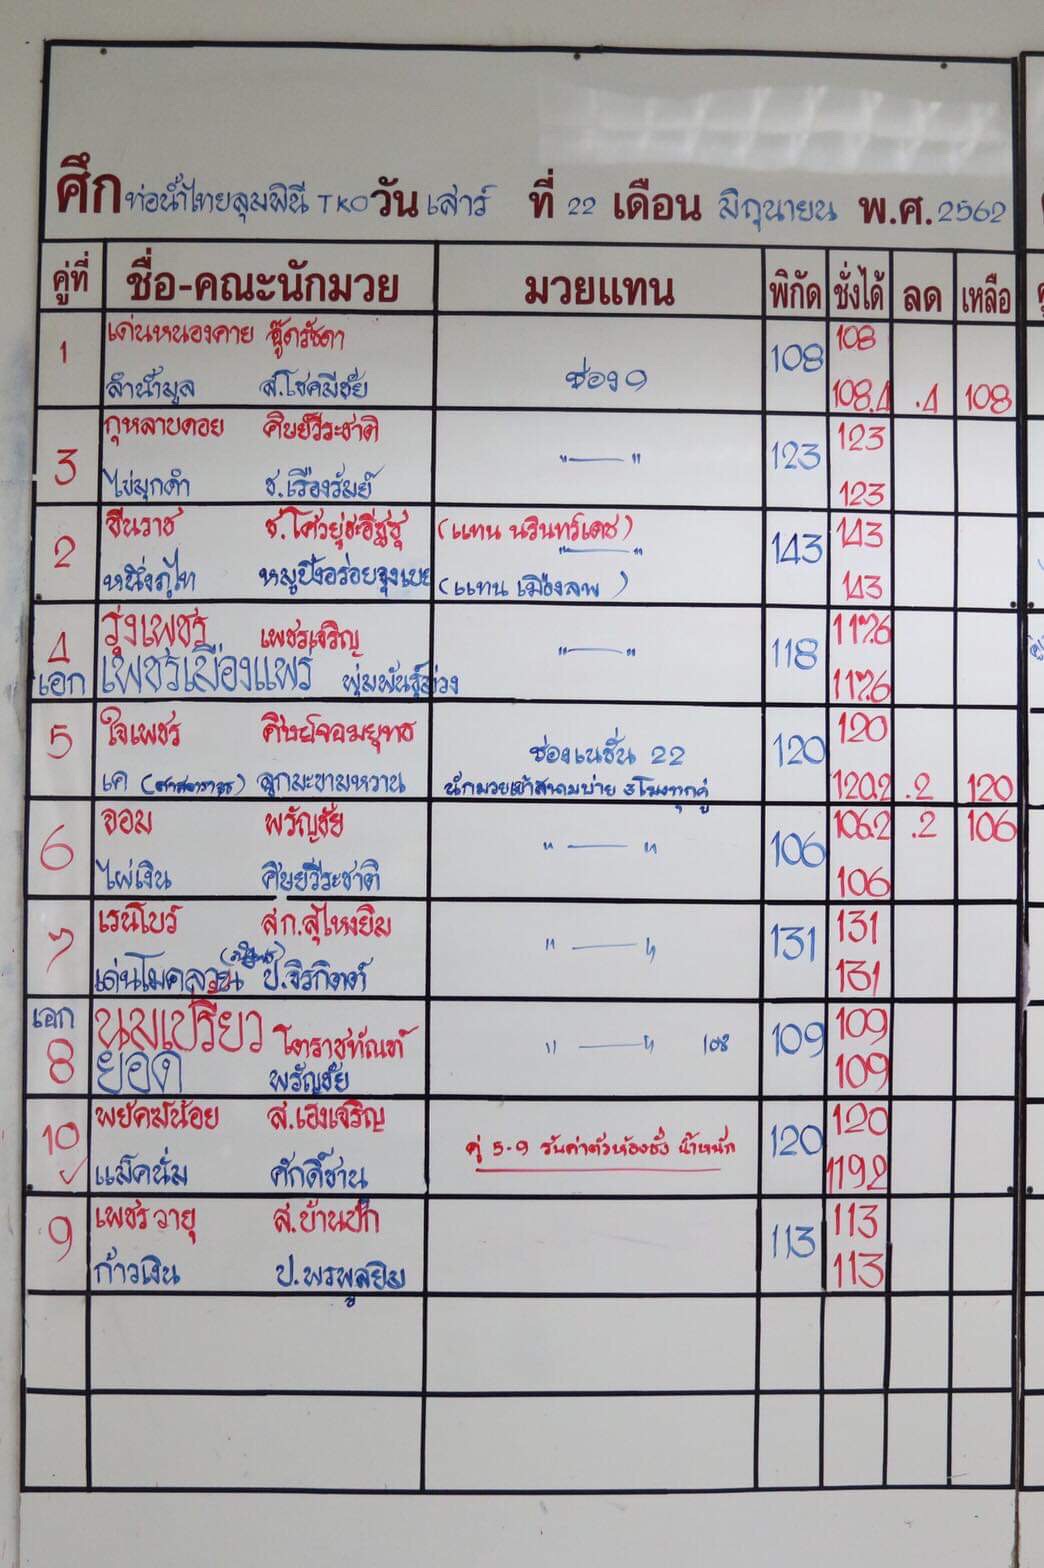 ศึก ท่อน้ำไทยลุมพินี TKO วัน เสาร์ ที่ 22 เดือน มิถุนายน พ.ศ. 2562
คู่ที่ ชื่อ-คณะนักมวย มวยแทน พิกัด ชั่งได้ ลด เหลือ
1 เด่นหนองคาย อู๊ดรัชดา 108 108
ลำน้ำมูล ส.โชคมีชัย ช่อง 9 108.4 .4 108
3 กุหลาบดอย ศิษย์วีระชาติ 123 123
ไข่มุกดำ ช.เรืองรัมย์ "—" 123
2 ชีนราช (แทน นรินทร์เดช) 143 143
หนึ่งภูไท หมูปิ้งอร่อยจุงเบย "—" (แทน เมืองลพ) 143
4 รุ่งเพชร เพชรเจริญ "—" 118
เอก เพชรเมืองแพร่
5 ใจเพชร ศิษย์จอมยุทธ ช่องเนชั่น 22 120 120
เค ลูกมะขามหวาน นักมวยเข้าสนามบ่าย 3 โมงทุกคู่ 120.2 .2 120
6 จอม พรัญชัย 106 106.2 .2 106
ไผ่เงิน ศิษย์วีระชาติ "—" 106
7 เรนโบว์ สก.สุไหงยิม "—" 131 131
ป.จิรกิตต์ 131
เอก นมเปรี้ยว โตราชทัณฑ์ "—" 108 109 109
8 ยอด พรัญชัย 109
10 พยัคฆ์น้อย ส.เฮงเจริญ 120 120
แม็คนั่ม ศักดิ์ชาน คู่ 5-9 รับค่าตัวห้องชั่ง น้ำหนัก 119.2
9 เพชรวายุ ส.บ้านปึก 113 113
ก้าวเงิน ป.พรพูลยิม 113